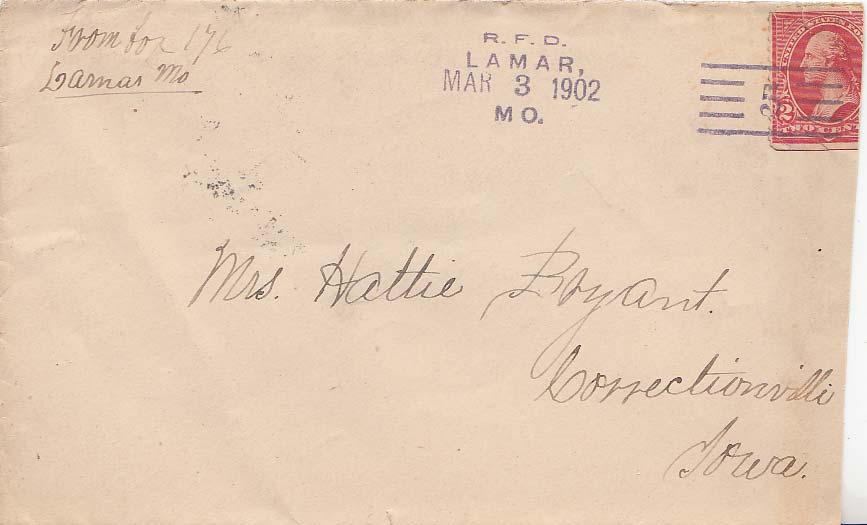 From box 176
Lamar Mo
R.F.D.
LAMAR,
MAR 3 1902
MO.
UNITED STATES POS
2
TWO CENT
Mrs. Hattie Bryant.
Correctionville
Iowa.